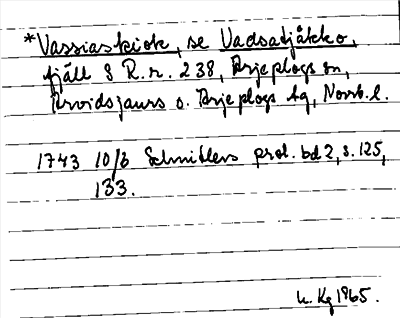 *Vassiaskiok, se Vadsatjåkko,
fjäll S R.r. 238, Arjeplogs sn,
Arvidsjaurs o. Arjeplogs tg, Norrb. l.
1743 10/6 Schnitlers prot. bd 2, s. 125,
133.
1965.